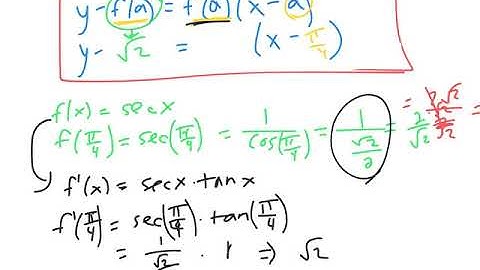 y - f(a) = f'(a) (x - a)
y - √2 = (x - π/4)
f(x) = sec x
f(π/4) = sec(π/4) = 1/cos(π/4) = 1/(√2/2) = 2/√2
f'(x) = sec x · tan x
f'(π/4) = sec(π/4) · tan(π/4)
= 1/√2 · 1 ⇒ √2